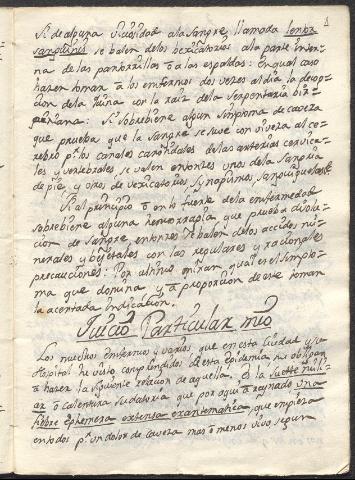 1
si de alguna viscosidad a la sangre, llamada lentor
sanguinis se balen delos bexicatorios ala parte inter-
na de las pantorrillas ô a las espaldas: En qual caso
hazen tomar â los enfermos dos vezes al dia la decoc-
cion dela Quina con la raiz dela serpentaria bir-
giniana: Si sobrebiene algun symptoma de caveza
que prueba que la sangre se suve con viveza al ce-
rebro pr. los canales carotidales delas arterias cervica-
les y vertebrales se valen entonzes unos dela sangria
de pie, y otros de vexicatorios sinapismos, sanguijuelas &
Si al principio ô en lo fuerte dela enfermedad
sobrebiene alguna hemorragia que prueba disolu-
cion de sangre, entonzes se balen delos accidos mi-
nerales y bejetales con las regulares y razionales
precauciones: Por ultimo miran qual es el simpto-
ma que domina y â proporcion de ese toman
la acertada indicacion.
Juicio Particular mio
Los muchos enfermos y varios que en esta ciudad y su
Hospital he visto comprendidos de esta epidemia me obligan
â hazer la siguiente relacion de aquella. Es la suette mili-
ar ô calentura sudatoria que por aqui â reynado una
fiebre Ephemera extensa exantematica, que empieza
en todos pr. un dolor de caveza mas ô menos vivo, segun